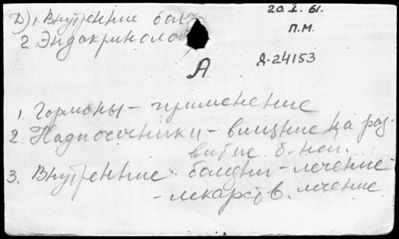 Д) 1. Внутренние бол
2. Эндокриноло
20.I.61.
П.М.
Д-24153
А
1. Гормоны – применение
2. Надпочечники – влияние на раз-
витие б-ней.
3. Внутренние болезни – лечение –
– лекарств. лечение